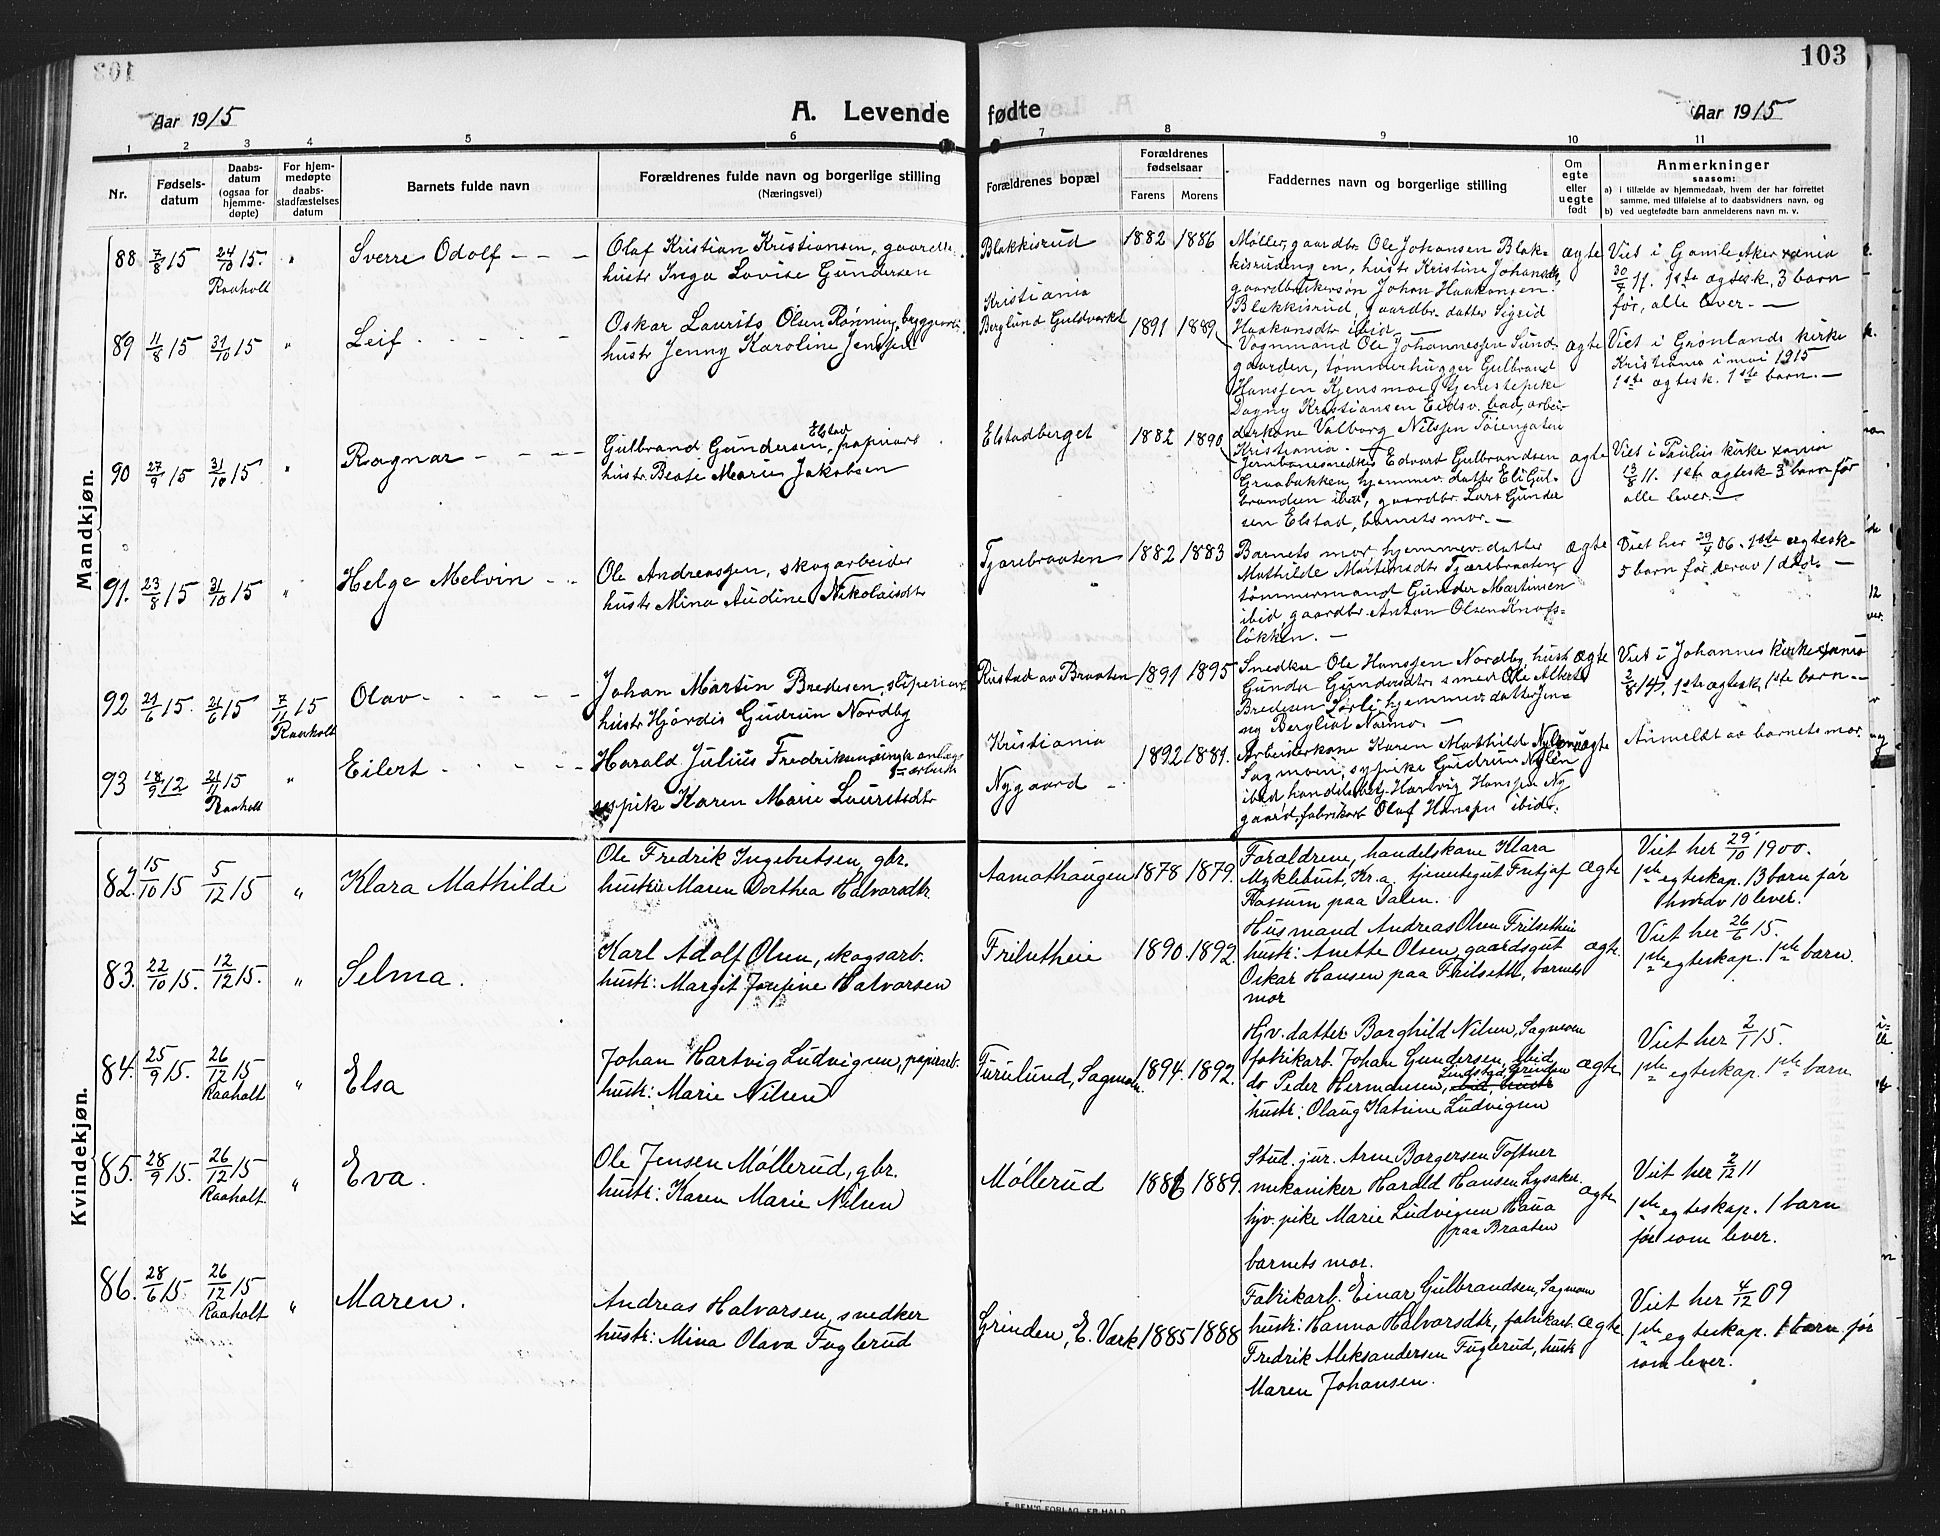 103
Aar 1915
A. Levende fødte
Aar 1915
1 2 3 4 5 6 7 8 9 10 11
Nr.
Fødsels-
datum
Daabs-
datum
(ogsaa for
hjemme-
døpte)
For hjem-
medøpte
daabs-
stadfæstelses
datum
Barnets fulde navn
Forældrenes fulde navn og borgerlige stilling
(Næringsvei)
Forældrenes bopæl
Forældrenes
fødselsaar
Farens Morens
Faddernes navn og borgerlige stilling
Om
egte
eller
uegte
født
Anmerkninger
saasom:
a) i tilfælde av hjemmedaab, hvem der har forrettet
samme, med tilføielse af to daabsvidners navn, og
b) ved uegtefødte barn anmelderens navn m. v.
Mandkjøn.
88 7/8 15 24/10 15. " Sverre Odolf
Raaholt
Olaf Kristian Kristiansen, gaardbr.
hustr Inga Lovise Gundersen
Blakkisrud 1882 1886
Møller, gaardbr. Ole Johansen Blak-
kisrudengen, hustr Kristine Johansdtr
gaardbrukersøn Johan Haakonsen
Blakkisrud, gaardbr. datter Sigrid
Haakonsdtr ibid
ægte
Viet i Gamle Aker xania
30/7 11. 1ste ægtesk. 3 barn
før, alle lever. —
89 11/8 15 31/10 15 " Leif
Oskar Laurits Olsen Rønning, byggearb.
hustr Jenny Karoline Jenssen
Kristiania
Berglund Guldverket 1891 1889
Vognmand Ole Johannessen Sund-
gaarden, tømmerhugger Gulbrand
Hanssen Kjensmoe, tjenestepike
Dagny Kristiansen Eidsv. bad, arbei-
derkone Valborg Nilssen Tøiengaten
Kristiania. —
ægte
Viet i Grønlands kirke
Kristiania i mai 1915
1ste ægtesk. 1ste barn. —
90 27/9 15 31/10 15 " Ragnar
Gulbrand Gundersen Elstad, papirarb.
hustr. Beate Marie Jakobsen
Elstadberget 1882 1890
Jernbanesnedker Edvard Gulbrandsen
Graabakken, hjemmev. datter Eli Gul-
brandsen ibid, gaardbr. Lars Gunder
sen Elstad, barnets mor. —
ægte
Viet i Paulus kirke xania
13/8 11. 1ste ægtesk 3 barn før
alle lever. —
91. 23/8 15 31/10 15 " Helge Melvin
Ole Andreassen, skogarbeider
hustr Mina Audine Nikolaisdtr
Tjærebraaten 1882 1883
Barnets mor, hjemmev. datter
Mathilde Martinsdtr Tjærebraaten
tømmermand Gunder Martinsen
ibid, gaardbr Anton Olsen Knofs-
løkken. —
ægte
Viet her 29/4 06. 1ste ægtesk
5 barn før derav 1 død. —
92 21/6 15. 21/6 15 7/11 15 Olav
Raaholt
Johan Martin Bredesen, sliperiarb.
hustr Hjørdis Gudrun Nordby
Rustad av Braaten 1891 1895
Snedker Ole Hanssen Nordby, hustr
Gunder Gundersdtr smed Ole Albert
Bredesen Sørli, hjemmev. datter Jen-
ny Bergliot Narmo. —
ægte
Viet i Johannes kirke xania
2/8 14. 1ste ægtesk, 1ste barn. —
93 18/9 12 21/11 15 " Eilert
Raaholt
Harald Julius Fredriksen, anlægs-
arbeider
sypike Karen Marie Lauritsdtr
Kristiania
Nygaard 1892 1889.
Arbeiderkone Karen Mathilde Nylen
Sagmoen, sypike Gudrun Nylén
ibid, handelsbetj. Hartvig Hanssen Ny
gaard, fabrikarb Olaf Hanssen ibid.
uægte
Anmeldt av barnets mor.
Kvindekjøn.
82. 15/10 15 5/12 15 " Klara Mathilde
Ole Fredrik Ingebretsen, gbr.
hustru Maren Dorthea Halvorsdtr.
Aamothaugen 1878 1879.
Forældrene, handelskone Klara
Myklebust, Kr.a, tjenestegut Fritjof
Fossum paa Dalen.
ægte
Viet her 29/10 1900.
1ste egteskap. 13 barn før
hvorav 10 lever.
83. 22/10 15. 12/12 15. " Selma.
Karl Adolf Olsen, skogsarb.
hustr: Margit Josefine Halvorsen
Frilsetheie 1890. 1892.
Husmand Andreas Olsen Frilsetheie
hustr: Anette Olsen, gaardsgut
Oskar Hansen paa Frilseth, barnets
mor
ægte.
Viet her 26/6 15.
1ste egteskap. 1ste barn.
84. 25/9 15. 26/12 15 " Elsa
Raaholt
Johan Hartvig Ludvigsen, papirarb.
hustr: Marie Nilsen
Furulund, Sagmoen. 1894. 1892.
Hjv. datter Borghild Nilsen, Sagmoen
fabrikarb. Johan Gundersen, ibid
do Peder Hermansen, Lindstad, Grinden
hustr: Olaug Katrine Ludvigsen
ægte
Viet her 2/1 15.
1ste egteskap. 1ste barn
85. 28/9 15. 26/12 15 " Eva.
Raaholt.
Ole Jensen Møllerud, gbr.
hustr: Karen Marie Nilsen
Møllerud 1886 1889.
Stud. jur. Arne Borgersen Toftner
mekaniker Harald Hansen Lysaker,
hjv. pike Marie Ludvigsen Haua
paa Braaten
barnets mor.
ægte
Viet her 2/12 11
1ste egteskap. 1 barn
før som lever.
86. 28/6 15. 26/12 15 " Maren.
Raaholt
Andreas Halvorsen, snedker
hustr: Mina Olava Fuglerud
Grinden, E. Værk 1885 1888
Fabrikarb. Einar Gulbrandsen, Sagmoen
hustr: Hanna Halvorsdtr, fabrikarb.
Fredrik Aleksandersen Fuglerud, hustr
Maren Johansen.
ægte
Viet her 4/12 09
1ste egteskap. 1 barn før
som lever.